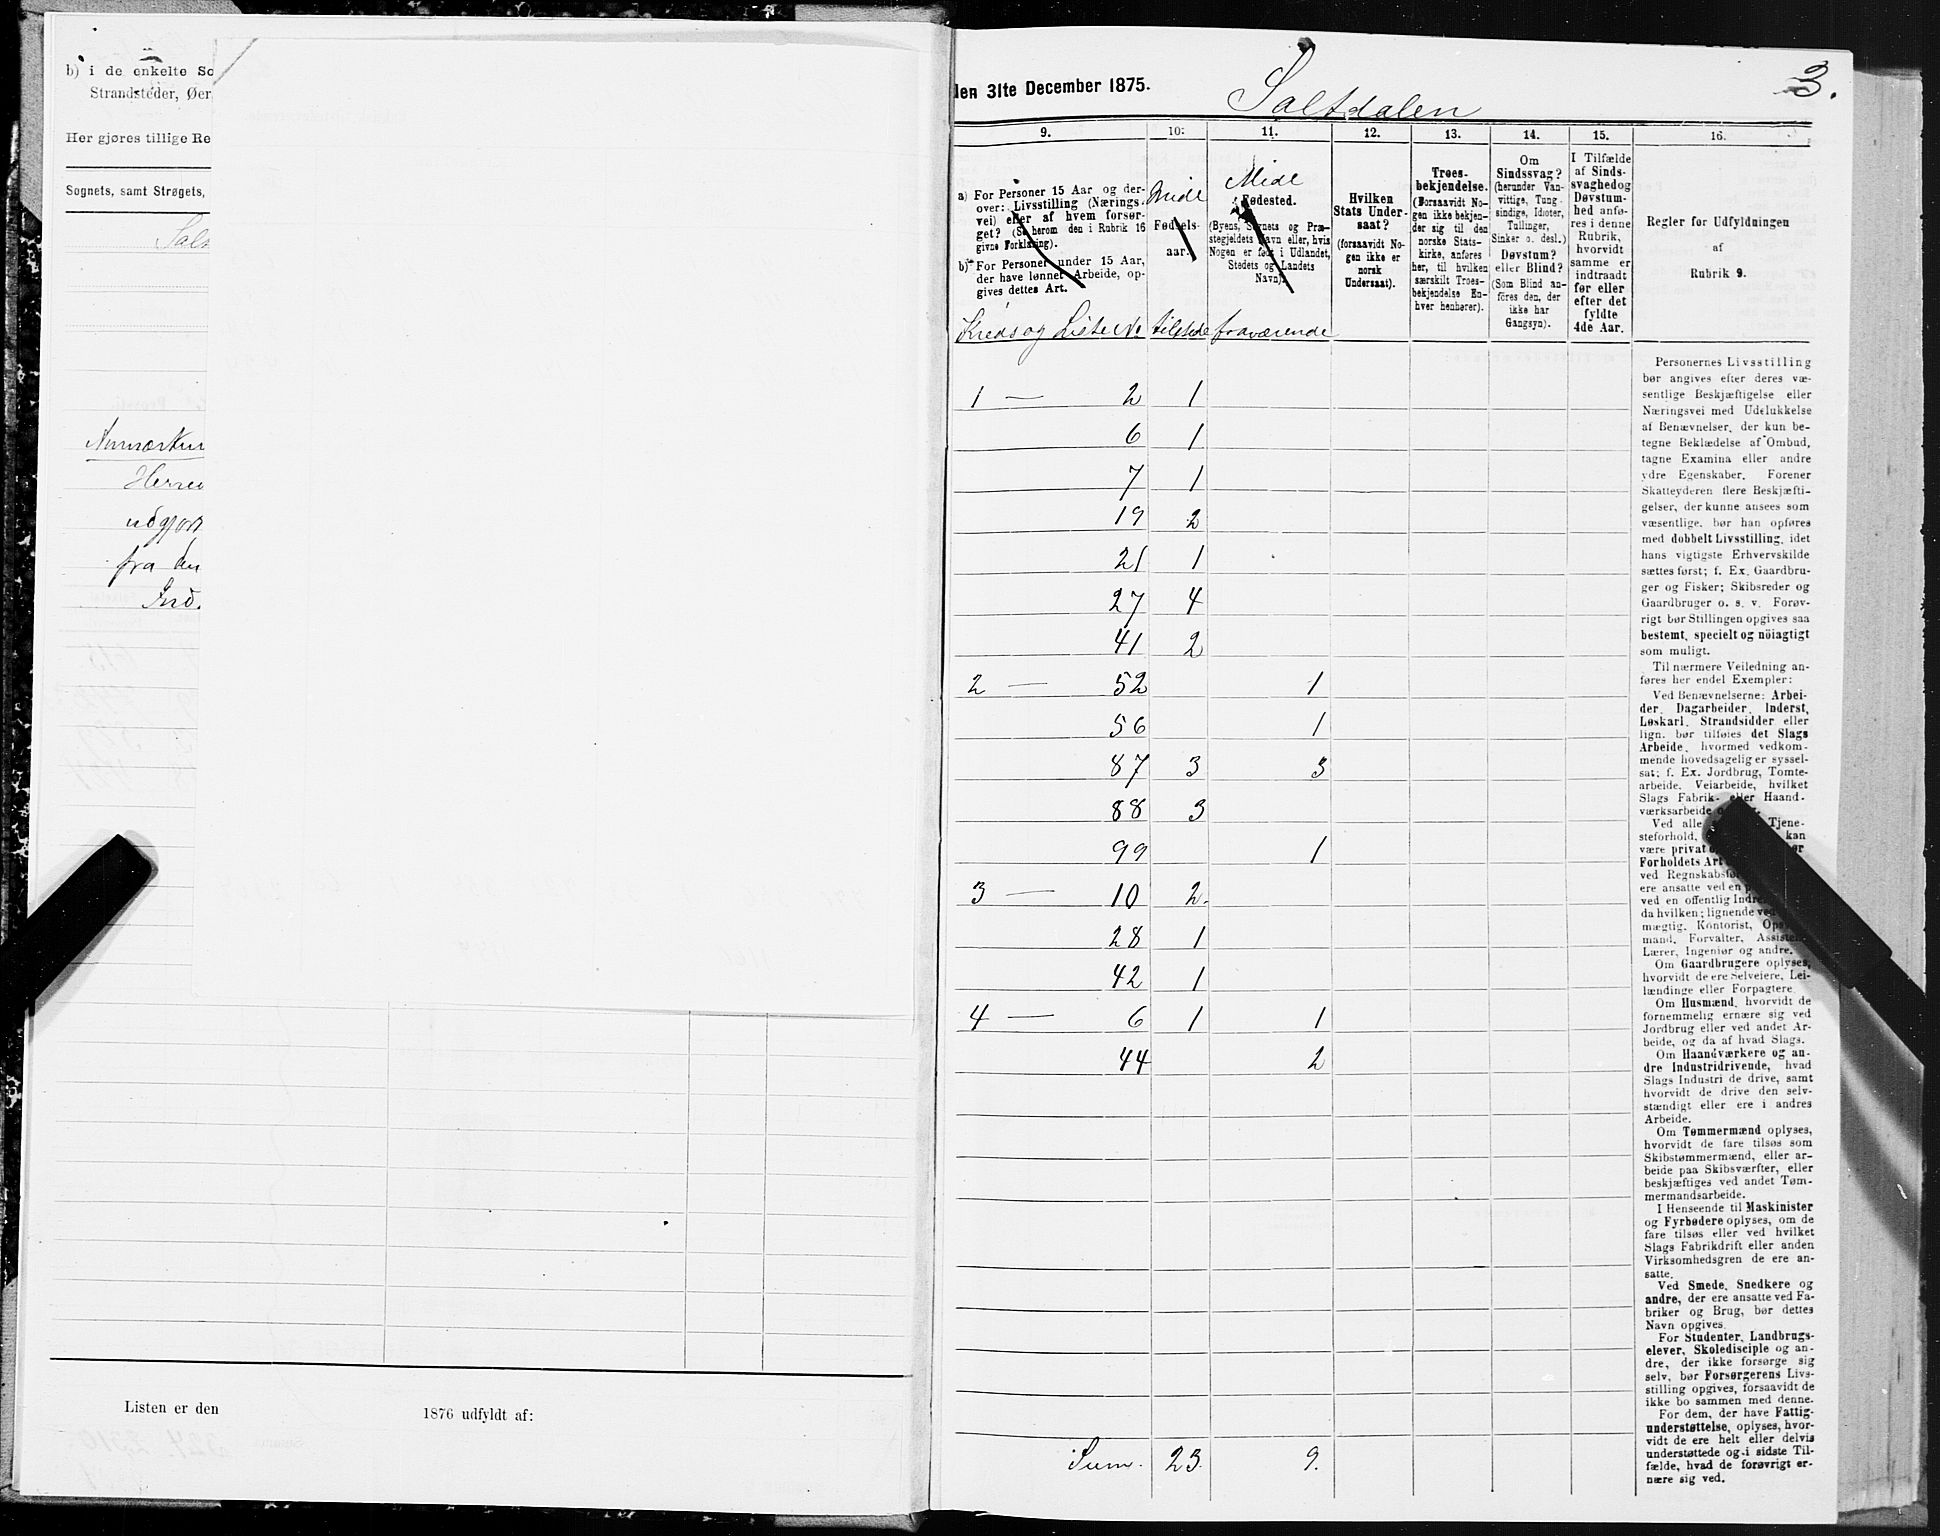 b) i de enkelte So
Strandsteder, Øer,
Her gjøres tillige Re
Sognets, samt Strøgets,
Sal
Anmærkn
Herre
udgjort
fra den
Ind.
Listen er den 1876 udfyldt af:
den 31te December 1875.
Saltdalen
3.
9. 10. 11. 12. 13. 14. 15. 16.
a) For Personer 15 Aar og der-
over: Livsstilling (Nærings-
vei) eller af hvem forsør-
get? (Se herom den i Rubrik 16
givne Forklaring).
b) For Personer under 15 Aar,
der have lønnet Arbeide, op-
gives dettes Art.
Mide
Fødsels-
aar.
Mide
Fødested.
(Byens, Sognets og Præ-
stegjeldets Navn eller, hvis
Nogen er født i Udlandet,
Stedets og Landets
Navn).
Hvilken
Stats Under-
saat?
(forsaavidt No-
gen ikke er
norsk
Undersaat).
Troes-
bekjendelse.
(Forsaavidt No-
gen ikke bekjen-
der sig til den
norske Stats-
kirke, anføres
her, til hvilken
særskilt Troes-
bekjendelse En-
hver henhører).
Om
Sindssvag?
(herunder Van-
vittige, Tung-
sindige, Idioter,
Tullinger,
Sinker o. desl.)
Døvstum?
eller Blind?
(Som Blind an-
føres den, der
ikke har
Gangsyn).
I Tilfælde
af Sinds-
svaghed og
Døvstum-
hed anfø-
res i denne
Rubrik,
hvorvidt
samme er
indtraadt
før eller
efter det
fyldte
4de Aar.
Regler før Udfyldningen
af
Rubrik 9.
Kreds og Liste No tilstede fraværende
1 — 2 1
6 1
7 1
19 2
21 1
27 4
41 2
2 — 52 1
56 1
87 3 3
88 3
99 1
3 — 10 2.
28 1
42 1
4 — 6 1 1
44 2
Sum. 23. 9.
Personernes Livsstilling
bør angives efter deres væ-
sentlige Beskjæftigelse eller
Næringsvei med Udelukkelse
af Benævnelser, der kun be-
tegne Beklædelse af Ombud,
tagne Examina eller andre
ydre Egenskaber. Forener
Skatteyderen flere Beskjæfti-
gelser, der kunne ansees som
væsentlige, bør han opføres
med dobbelt Livsstilling, idet
hans vigtigste Erhvervskilde
sættes først; f. Ex. Gaardbru-
ger og Fisker; Skibsreder og
Gaardbruger o. s. v. Forøv-
rigt bør Stillingen opgives saa
bestemt, specielt og nöiagtigt
som muligt.
Til nærmere Veiledning an-
føres her endel Exempler:
Ved Benævnelserne: Arbei-
der, Dagarbeider, Inderst,
Løskarl, Strandsidder eller
lign. bør tilføies det Slags
Arbeide, hvormed vedkom-
mende hovedsagelig er syssel-
sat; f. Ex. Jordbrug, Tomte-
arbeide, Veiarbeide, hvilket
Slags Fabrik- eller Haand-
værksarbeide
Ved alle Tjene-
steforhold, kan
være privat
Forholdets Art
ved Regnskabsfør
ere ansatte ved en
ved en offentlig Indre
da hvilken; lignende ved
mægtig, Kontorist, Ops
mand, Forvalter, Assistent,
Lærer, Ingeniør og andre.
Om Gaardbrugere oplyses,
hvorvidt de ere Selveiere, Lei-
lændinge eller Forpagtere.
Om Husmænd, hvorvidt de
fornemmelig ernære sig ved
Jordbrug eller ved andet Ar-
beide, og da af hvad Slags.
Om Haandværkere og an-
dre Industridrivende, hvad
Slags Industri de drive, samt
hvorvidt de drive den selv-
stændigt eller ere i andres
Arbeide.
Om Tømmermænd oplyses,
hvorvidt de fare tilsøs som
Skibstømmermænd, eller ar-
beide paa Skibsværfter, eller
beskjæftiges ved andet Tøm-
mermandsarbeide.
I Henseende til Maskinister
og Fyrbødere oplyses, om de
fare tilsøs eller ved hvilket
Slags Fabrikdrift eller anden
Virksomhedsgren de ere an-
satte.
Ved Smede, Snedkere og
andre, der ere ansatte ved Fa-
briker og Brug, bør dettes
Navn opgives.
For Studenter, Landbrugs-
elever, Skoledisciple og an-
dre, der ikke forsørge sig
selv, bør Forsørgerens Livs-
stilling opgives, forsaavidt de
ikke bo sammen med denne.
For dem, der have Fattig-
understøttelse, oplyses, hvor-
vidt de ere helt eller delvis
understøttede og i sidste Til-
fælde, hvad de forøvrigt er-
nære sig ved.